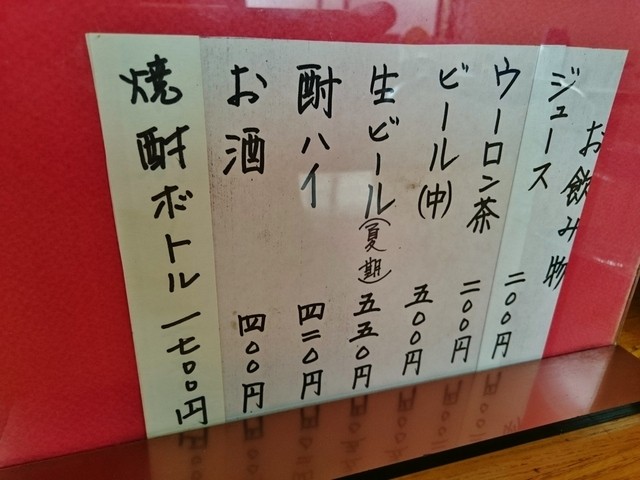 お飲み物
ジュース 二〇〇円
ウーロン茶 二〇〇円
ビール(中) 五〇〇円
生ビール(夏期) 五五〇円
酎ハイ 四二〇円
お酒 四〇〇円
焼酎ボトル 一七〇〇円